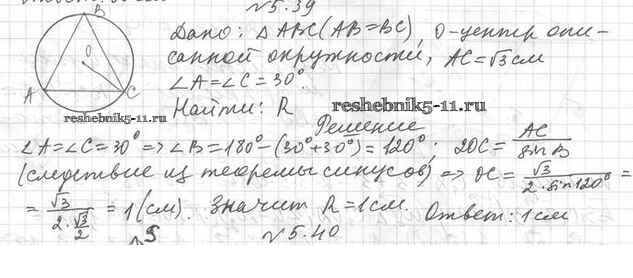 №5.39
B
O
A
C
Дано: △ABC (AB=BC), O-центр опи-
санной окружности, AC=√3 см
∠A=∠C=30°.
Найти: R
reshebnik5-11.ru
reshebnik5-11.ru
Решение
∠A=∠C=30° => ∠B=180°-(30°+30°)=120°; 2OC = AC/sin B
(следствие из теоремы синусов) => OC = √3/(2·sin120°) =
= √3/(2·√3/2) = 1 (см). Значит R=1 см. Ответ: 1 см
№5.40